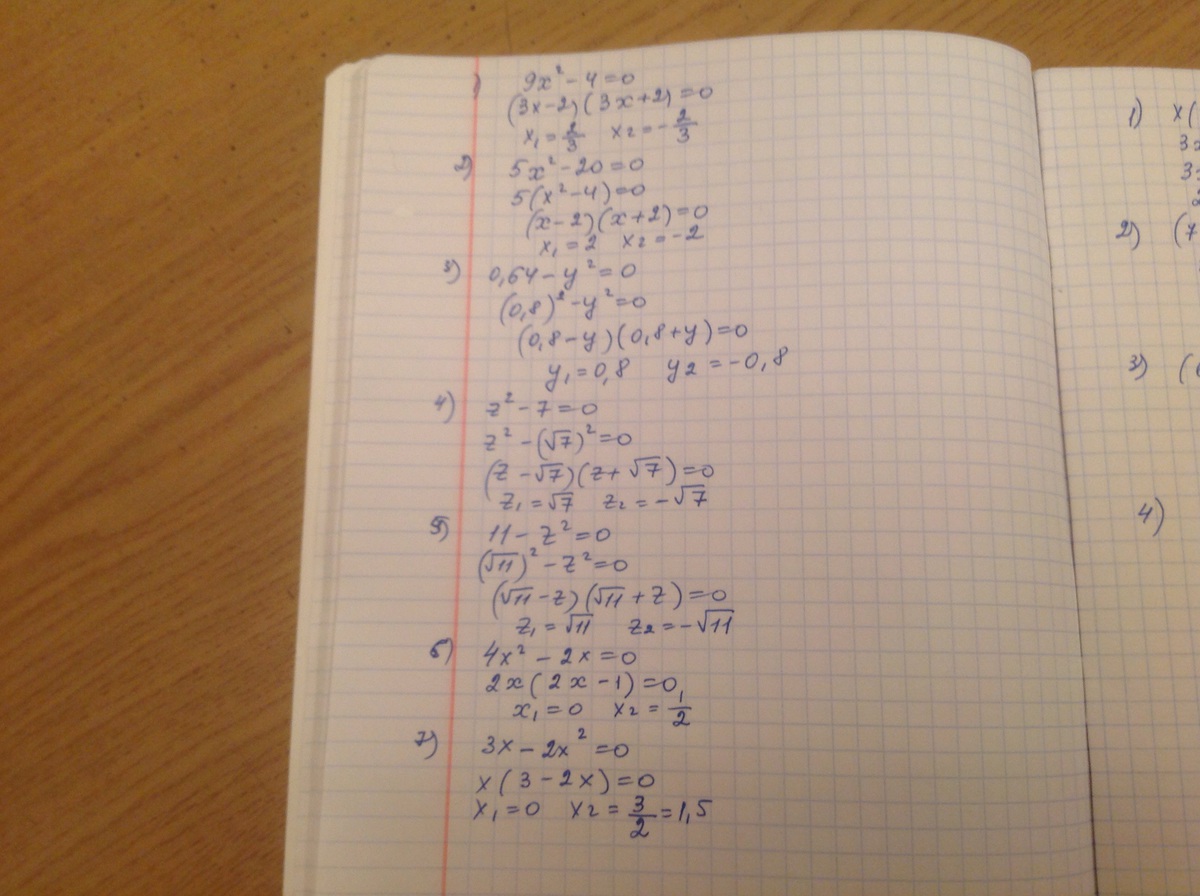 1) 9x² - 4 = 0
(3x-2)(3x+2) = 0
x₁ = 2/3 x₂ = -2/3
2) 5x² - 20 = 0
5(x² - 4) = 0
(x-2)(x+2) = 0
x₁ = 2 x₂ = -2
3) 0,64 - y² = 0
(0,8)² - y² = 0
(0,8 - y)(0,8 + y) = 0
y₁ = 0,8 y₂ = -0,8
4) z² - 7 = 0
z² - (√7)² = 0
(z - √7)(z + √7) = 0
z₁ = √7 z₂ = -√7
5) 11 - z² = 0
(√11)² - z² = 0
(√11 - z)(√11 + z) = 0
z₁ = √11 z₂ = -√11
6) 4x² - 2x = 0
2x(2x - 1) = 0
x₁ = 0 x₂ = 1/2
7) 3x - 2x² = 0
x(3 - 2x) = 0
x₁ = 0 x₂ = 3/2 = 1,5
1) x(
3x
3
2
2) (7
3) (
4)